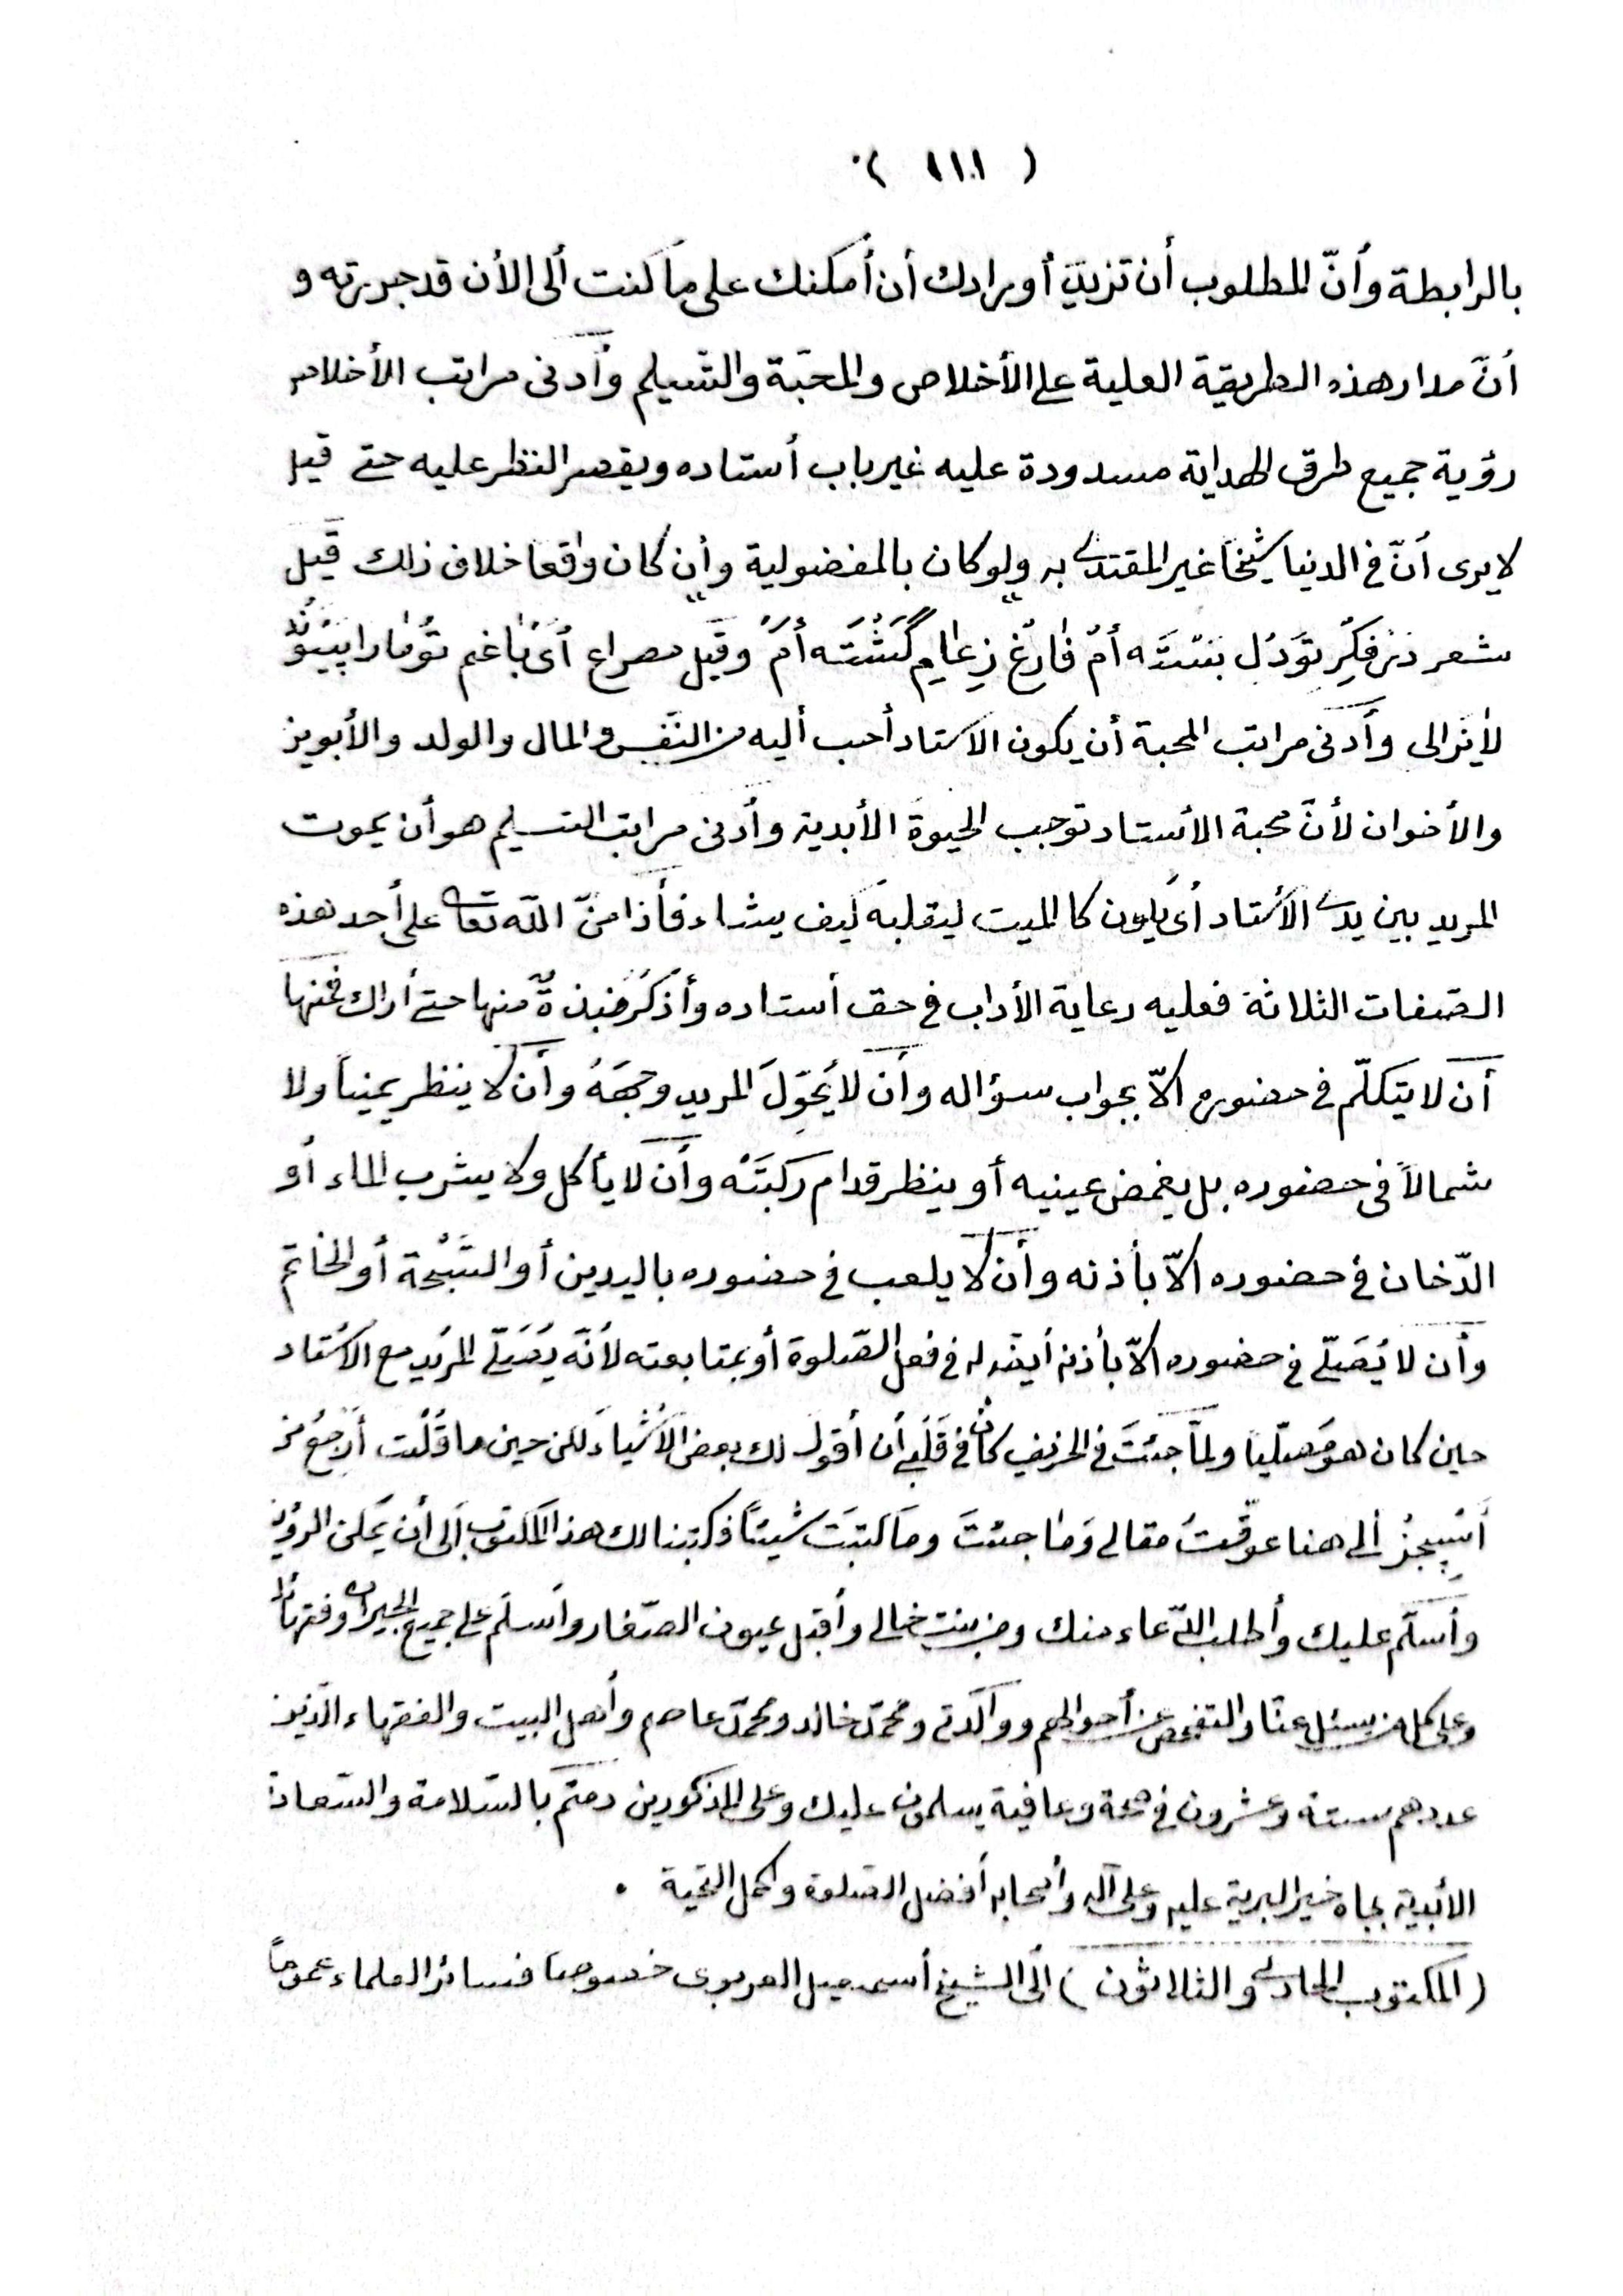 ( ١١١ )
بالرابطة وأنّ المطلوب أن تزيد أورادك أن أمكنك على ما كنت ألى الأن قد جررته و
أنّ مدار هذه الطريقة العلية على الأخلاص والمحبّة والتسليم وأدنى مراتب الأخلاص
رؤية جميع طرق الهداية مسدودة عليه غير باب أستاده ويقصر النظر عليه حتى قيل
لا يرى أنّ فى الدنيا شيخًا غير المقتدى به ولو كان بالمفضولية وأن كان واقعا خلاف ذلك قيل
شعر فكر تو دل بسته أم فارغ ز گشته أم وقيل مصراع أى با غم تو مارا
لا يزالى وأدنى مراتب المحبة أن يكون الاستاد أحب أليه من النفس والمال والولد والأبوين
والأخوان لأنّ محبة الأستاد توجب الحيوة الأبدية وأدنى مراتب التسليم هو أن يموت
المريد بين يدى الأستاد أى يكون كالميت ليقلبه كيف يشاء فأذا منّ اللّه تعالى على أحد هذه
الصّفات الثلاثة فعليه رعاية الأداب فى حق أستاده وأذكر نبذة منها حتى أراك فمنها
أن لا يتكلّم فى حضوره الاّ بجواب سؤاله وأن لا يُحَوِّلَ المريد وجهَهُ وأن لا ينظر يمينًا ولا
شمالاً فى حضوره بل يغمض عينيه أو ينظر قدام ركبَتَه وأن لا يأكل ولا يشرب الماء أو
الدّخان فى حضوره الاّ بأذنه وأن لا يلعب فى حضوره باليدين أو السَّبْحة أو الخاتم
وأن لا يُصَلّى فى حضوره الاّ بأذنه أيضا له فى فعل الصّلوة أو بمتابعته لأنّه يُصَلّى المريد مع الأستاد
حين كان هو مصلّيا ولمّا جئتَ فى الخريف كان فى قلبى أن أقول لك بعض الأشياء لكن حين ما قُلْت أرجعُ من
ألى هنا عوّقتُ مقالى وَما جئتَ وما كتبَت شيئًا فكتبنا لك هذا المكتوب ألى أن يمكن الرؤية
وأسلّم عليك وأطلب الدّعاء منك ومن بنت خالى وأقبّل عيون الصّغار وأسلّم على جميع الجيران وفقهائنا
وعلى كل من يسئل عنّا والتفحص عن أحوالهم ووالدتى ومحمّد خالد ومحمّد عاصم وأهل البيت والفقهاء الّذين
عددهم ستة وعشرون فى صحة وعافية يسلمون عليك وعلى المذكورين دمتم بالسّلامة والسّعادة
الأبدية بجاه خير البرية عليه وعلى آله وأصحابه أفضل الصّلوة وأكمل التحية .
(المكتوب الحادى والثلاثون) ألى الشيخ أسمعيل العربوى خصوصا فسائر العلماء عمومًا